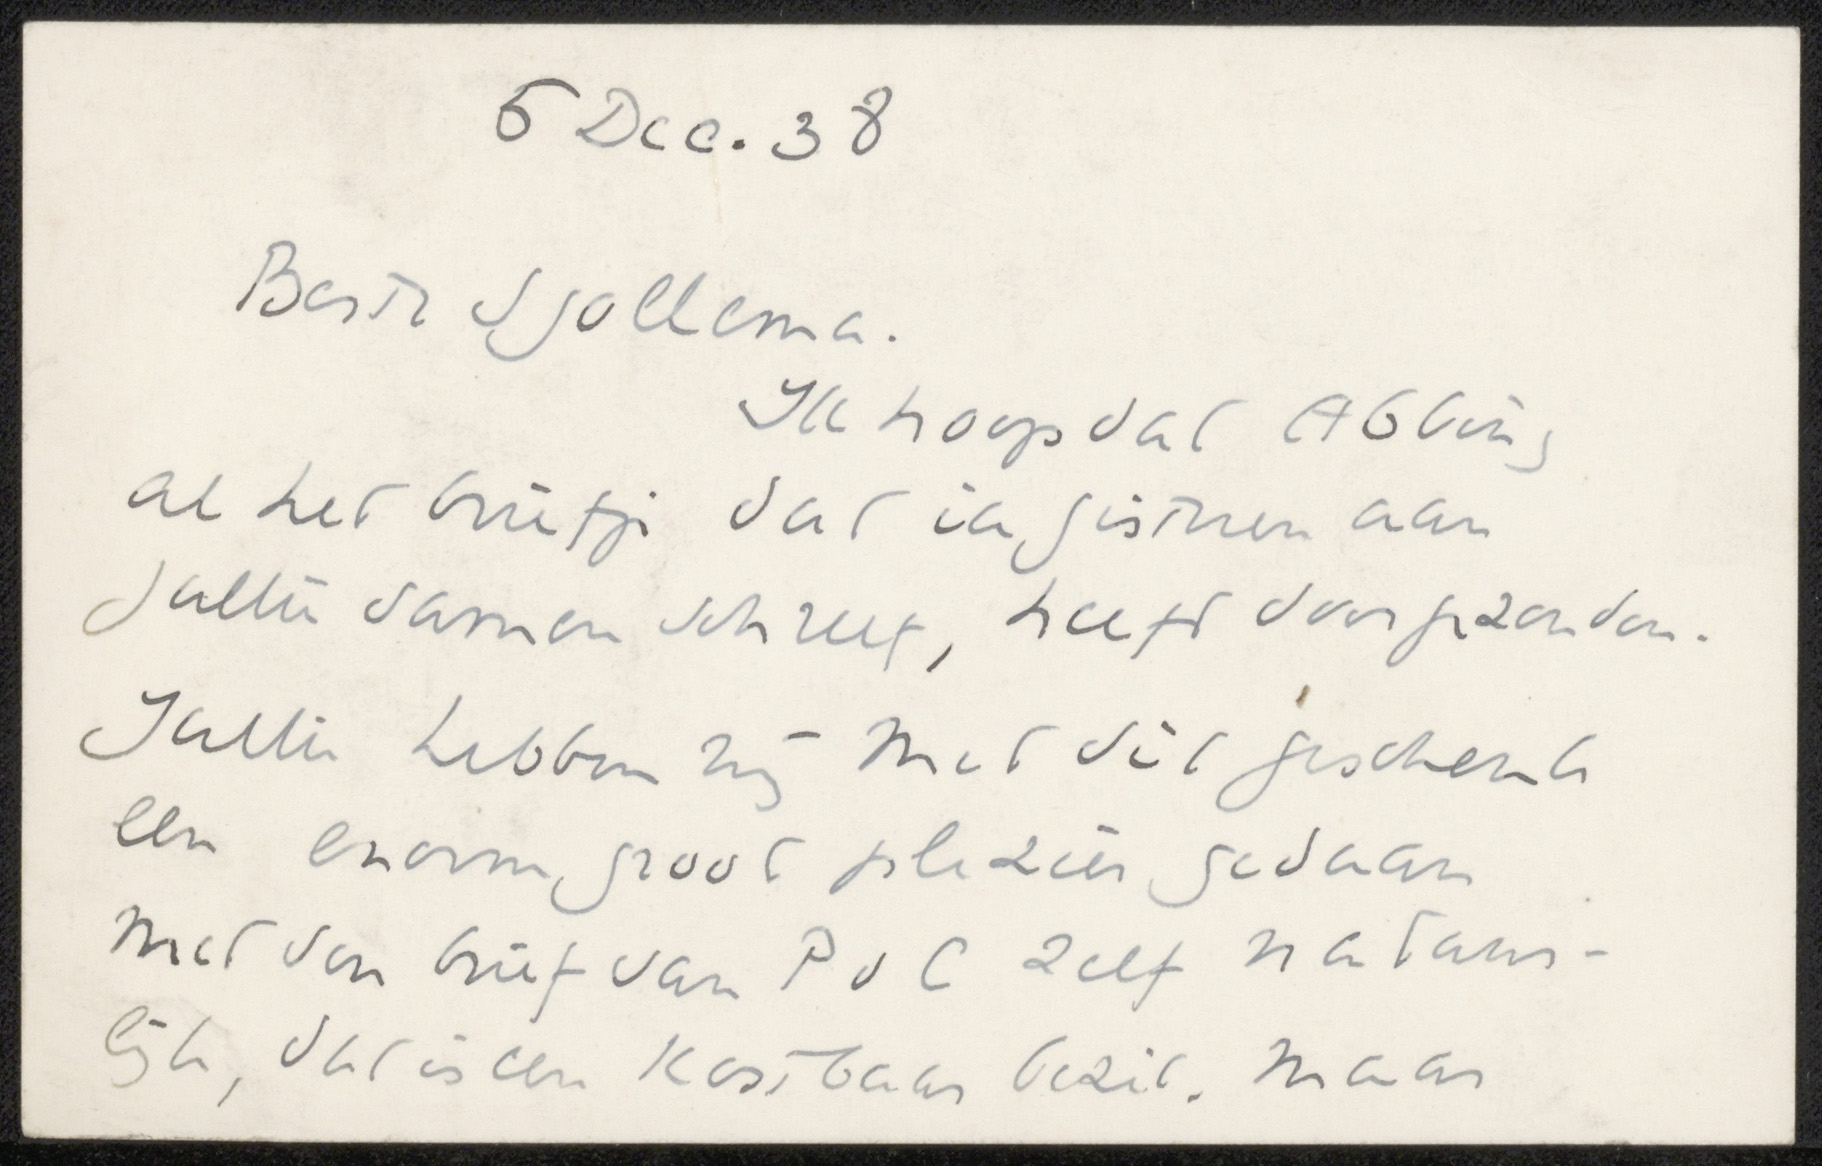 5 Dec. 38
Beste Sjollema.
Ik hoop dat Abbing
al het briefje dat ik gisteren aan
jullie samen schreef, heeft doorgezonden.
Jullie hebben mij met dit geschenk
een enorm groot plezier gedaan
met den brief van P v C zelf natuur-
lijk, dat is een kostbaar bezit. Maar